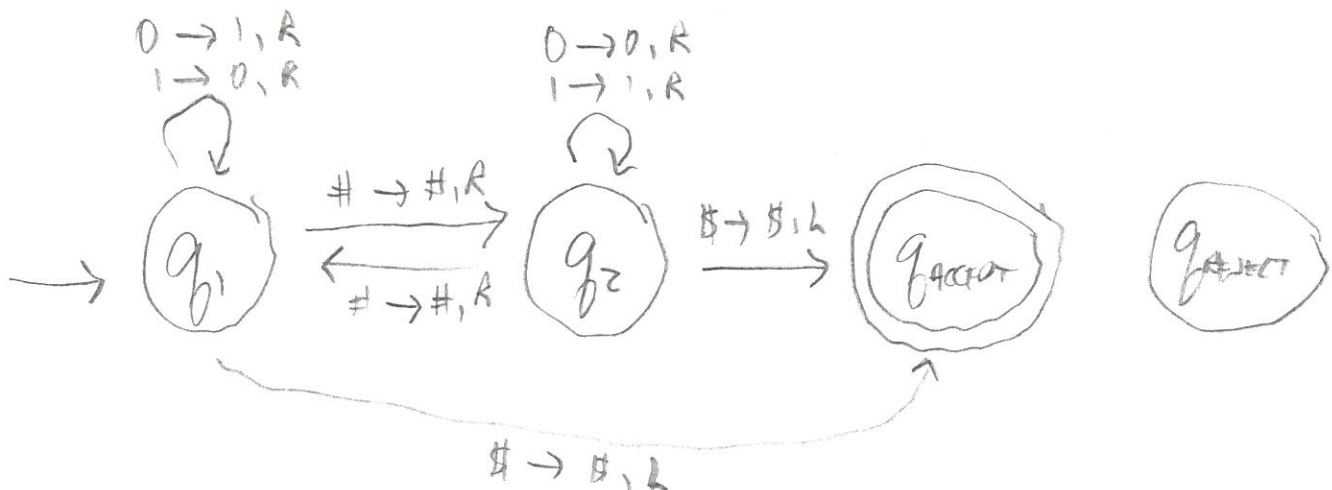 0 → 1, R
1 → 0, R
0 → 0, R
1 → 1, R
# → #, R
$ → $, L
q1
q2
qACCEPT
qREJECT
# → #, R
$ → $, L